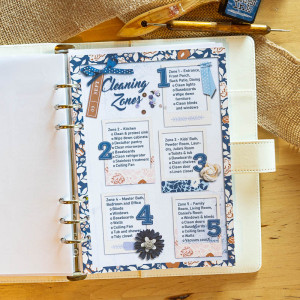 Cleaning
Zones
Zone 1 - Entrance,
Front Porch,
Back Patio, Dining
Clean lights
Baseboards
Wipe down
furniture
Clean blinds
and windows
Zone 2 - Kitchen
Clean & protect sink
Wipe down cabinets
Declutter pantry
Clean microwave
Baseboards
Clean refrigerator
Stainless treatment
Ceiling Fan
2
Zone 3 - Kids' Bath,
Powder Room, Laun-
dry,
Toilets & tub
Baseboards
Sweep floor
Clean sinks
Clean doors
Linen closet
3
Zone 4 - Master Bath,
Bedroom and Office
Blinds
Windows
Baseboards
Walls
Ceiling Fan
Tub and shower
Tidy closet
4
Zone 5 - Family
Room, Living Room,
Windows
Clean doors
Baseboards
Ceiling fans
Walls
5